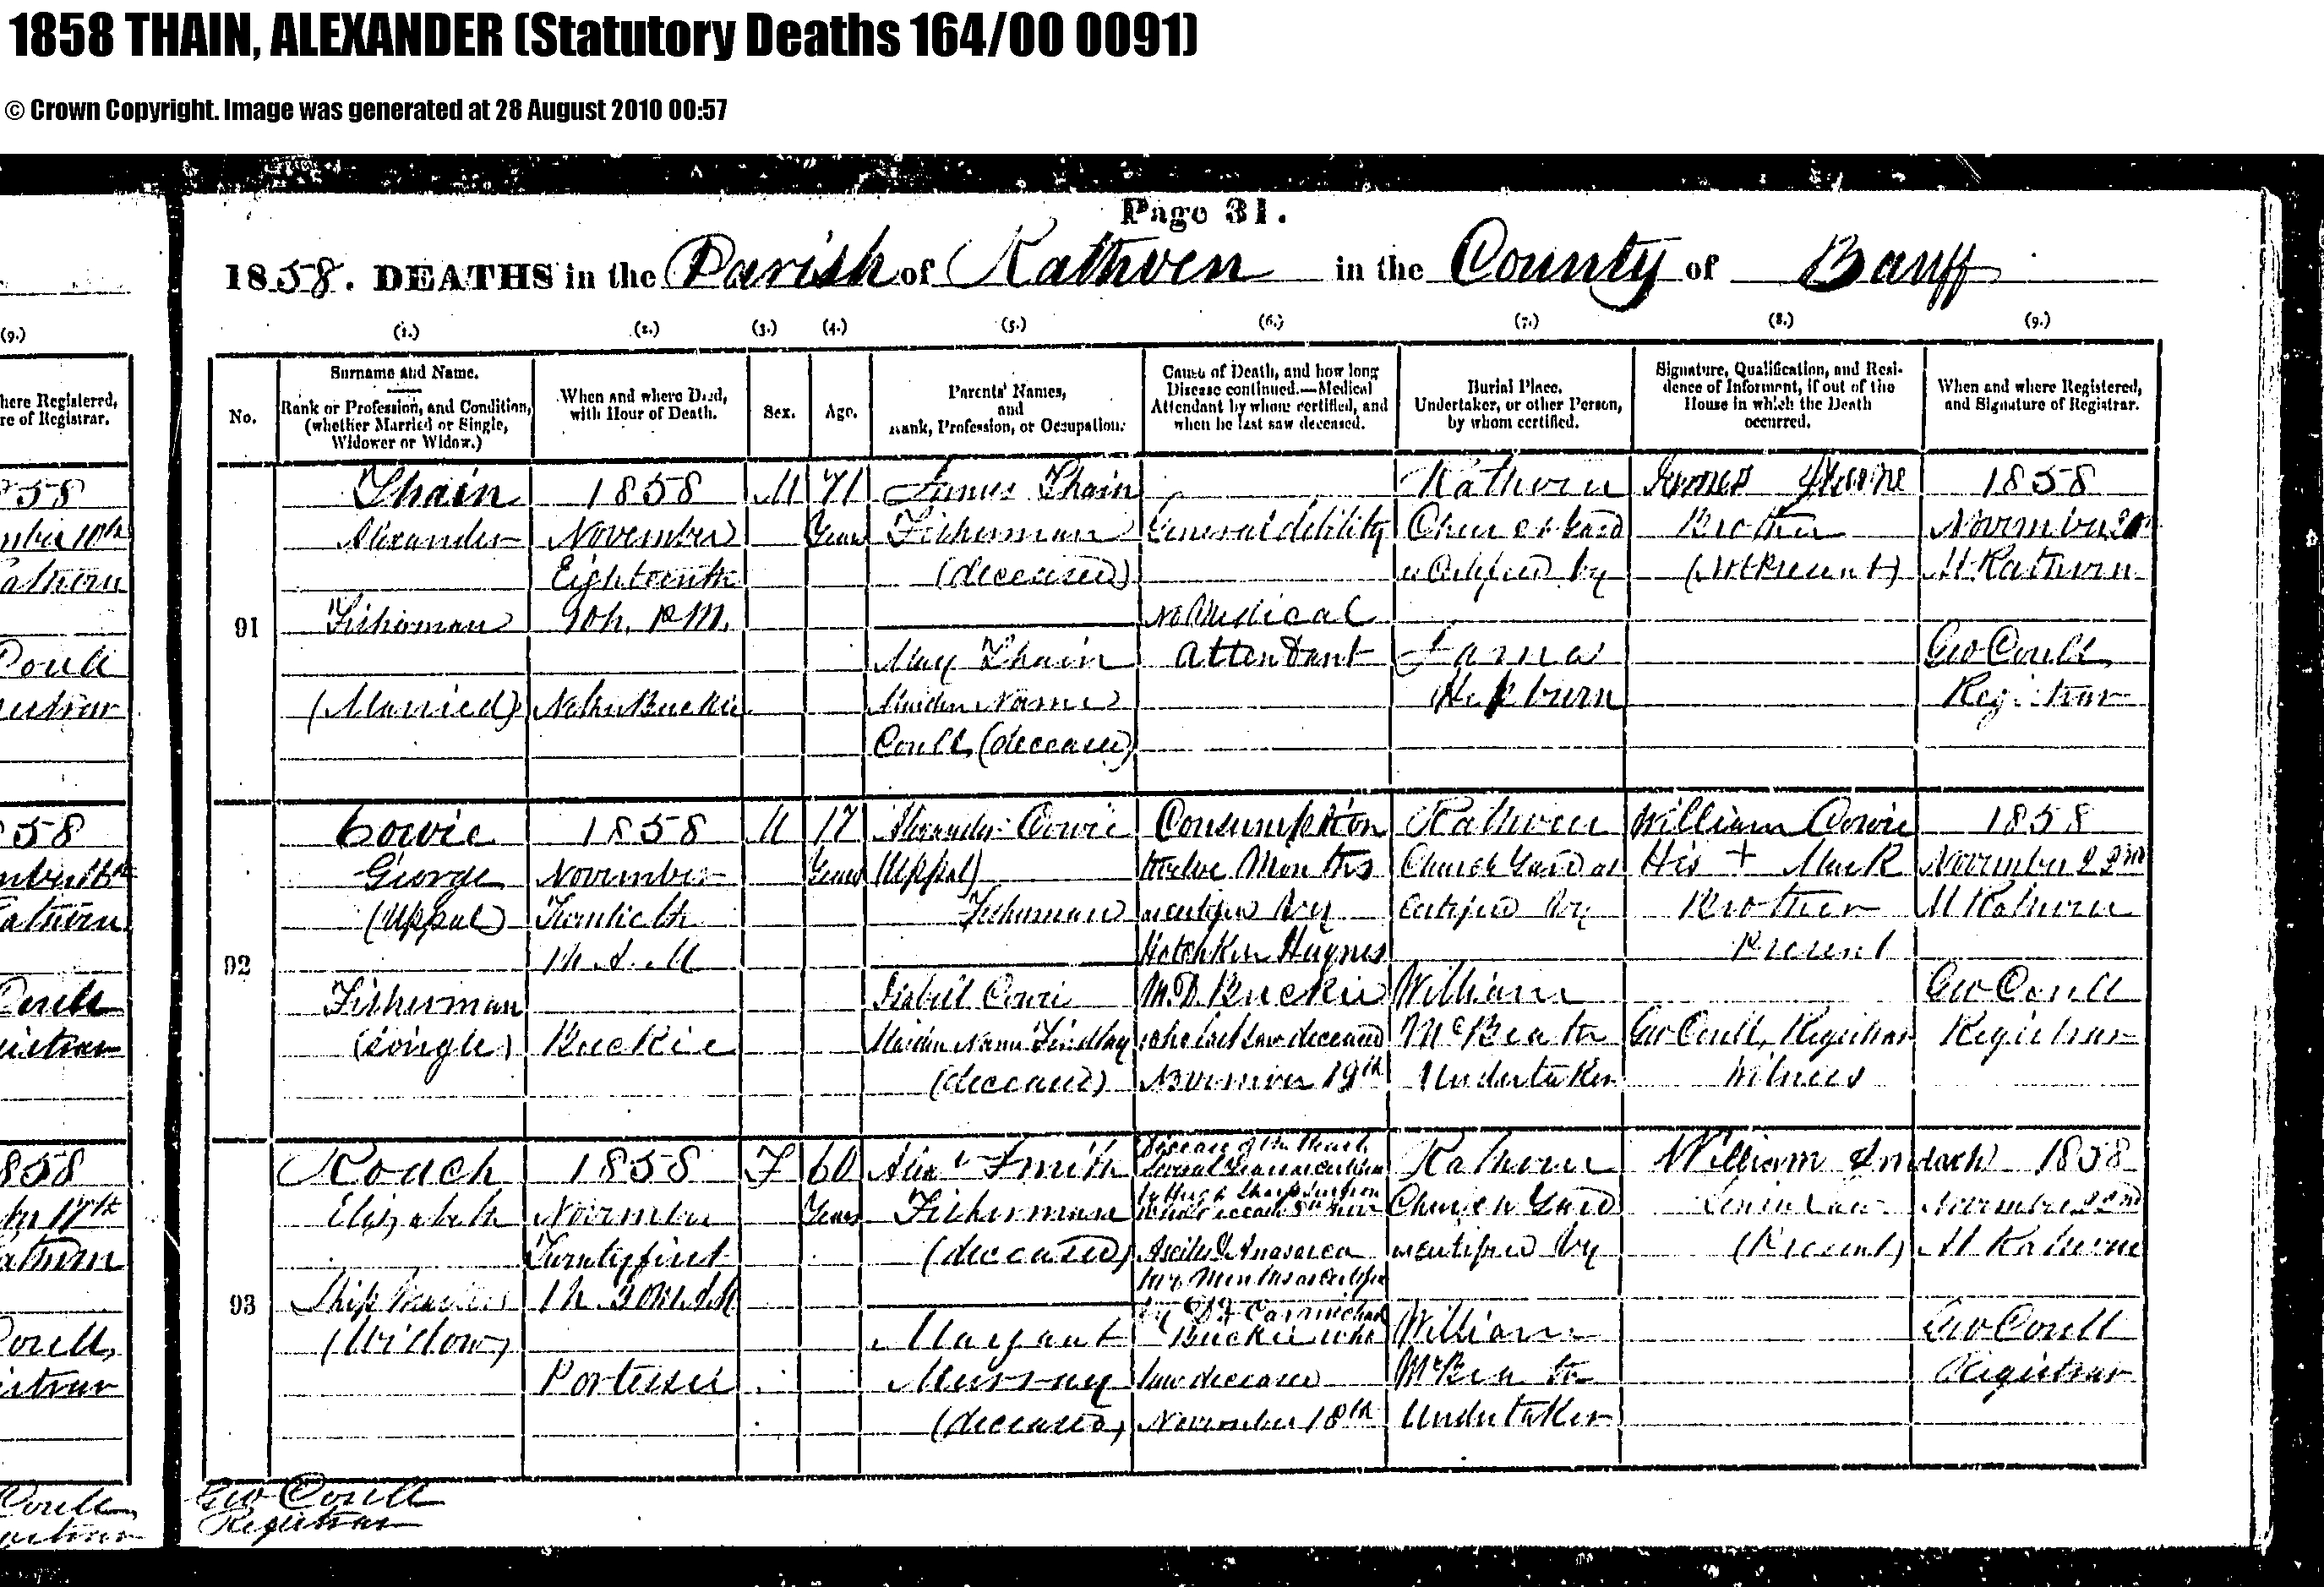 1858 THAIN, ALEXANDER (Statutory Deaths 164/00 0091)
© Crown Copyright. Image was generated at 28 August 2010 00:57
Page 31.
1858. DEATHS in the Parish of Rathven in the County of Banff
(9.) (1.) (2.) (3.) (4.) (5.) (6.) (7.) (8.) (9.)
No.
Surname and Name.
Rank or Profession, and Condition,
(whether Married or Single,
Widower or Widow.)
When and where Died,
with Hour of Death.
Sex.
Age.
Parents' Names,
and
Rank, Profession, or Occupation.
Cause of Death, and how long
Disease continued.—Medical
Attendant by whom certified, and
when he last saw deceased.
Burial Place.
Undertaker, or other Person,
by whom certified.
Signature, Qualification, and Resi-
dence of Informant, if out of the
House in which the Death
occurred.
When and where Registered,
and Signature of Registrar.
91
Thain
Alexander
Fisherman
(Married)
1858
November
Eighteenth
9h. P.M.
Nether Buckie
M
71
Years
James Thain
Fisherman
(deceased)
Mary Thain
Maiden Name
Coull, (deceased)
General debility
No Medical
Attendant
Rathven
Church Yard
as Certified by
James
Hepburn
James
Brother
(Not Present)
1858
November
At Rathven
Geo Coull,
Registrar
92
Cowie
George
(Uppal)
Fisherman
(Single)
1858
November
Twentieth
1h. A. M
Buckie
M
17
Years
Alexander Cowie
(Uppal)
Fisherman
Isabell Cowie
Maiden Name Findlay
(deceased)
Consumption
twelve Months
as certified by
Hotchkin Haynes
M.D. Buckie
who last saw deceased
November 19th
Rathven
Church Yard as
Certified by
William
McBeath
Undertaker
William Cowie
His + Mark
Brother
Present
Geo Coull, Registrar
Witness
1858
November 22nd
At Rathven
Geo Coull
Registrar
93
Roach
Elizabeth
(Widow)
1858
November
Twenty first
1h. 30m. A.M
Portessie
F
60
Years
Alexr Smith
Fisherman
(deceased)
Margaret
Murray
(deceased)
Disease of the Heart
Ascites & Anasarca
two Months as Certified
by Dr Carmichael
Buckie who
saw deceased
November 18th
Rathven
Church Yard
as certified by
William
McBeath
Undertaker
William
Son in Law
(Present)
1858
November 22nd
At Rathven
Geo Coull
Registrar
Geo Coull
Registrar